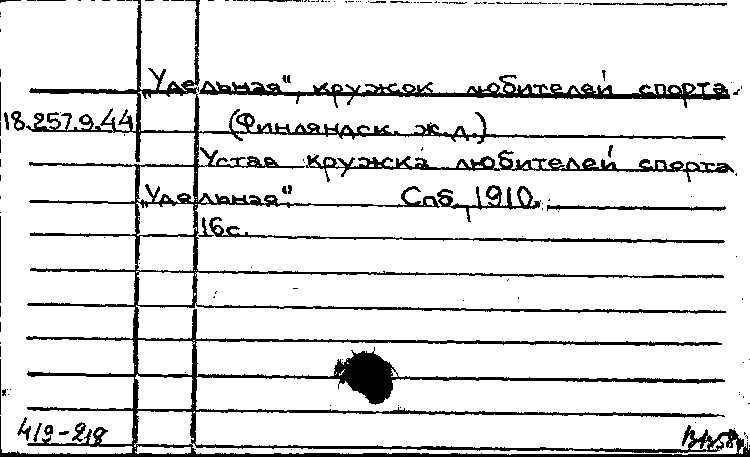 „Удельная“, кружок любителей спорта.
18.257.9.44
(Финляндск. ж.д.)
Устав кружка любителей спорта
„Удельная“. Спб., 1910.
16с.
4/9-218